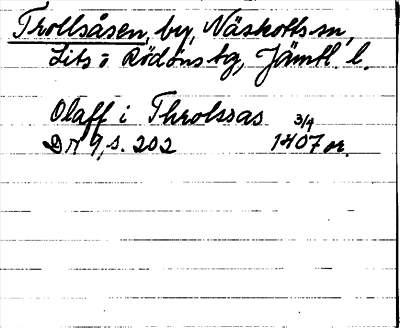 Trollsåsen, by, Näskotts sn,
Lits o Rödöns tg, Jämtl. l.
Olaff i Throlssas 3/9
DN 9, s. 202 1407 or.